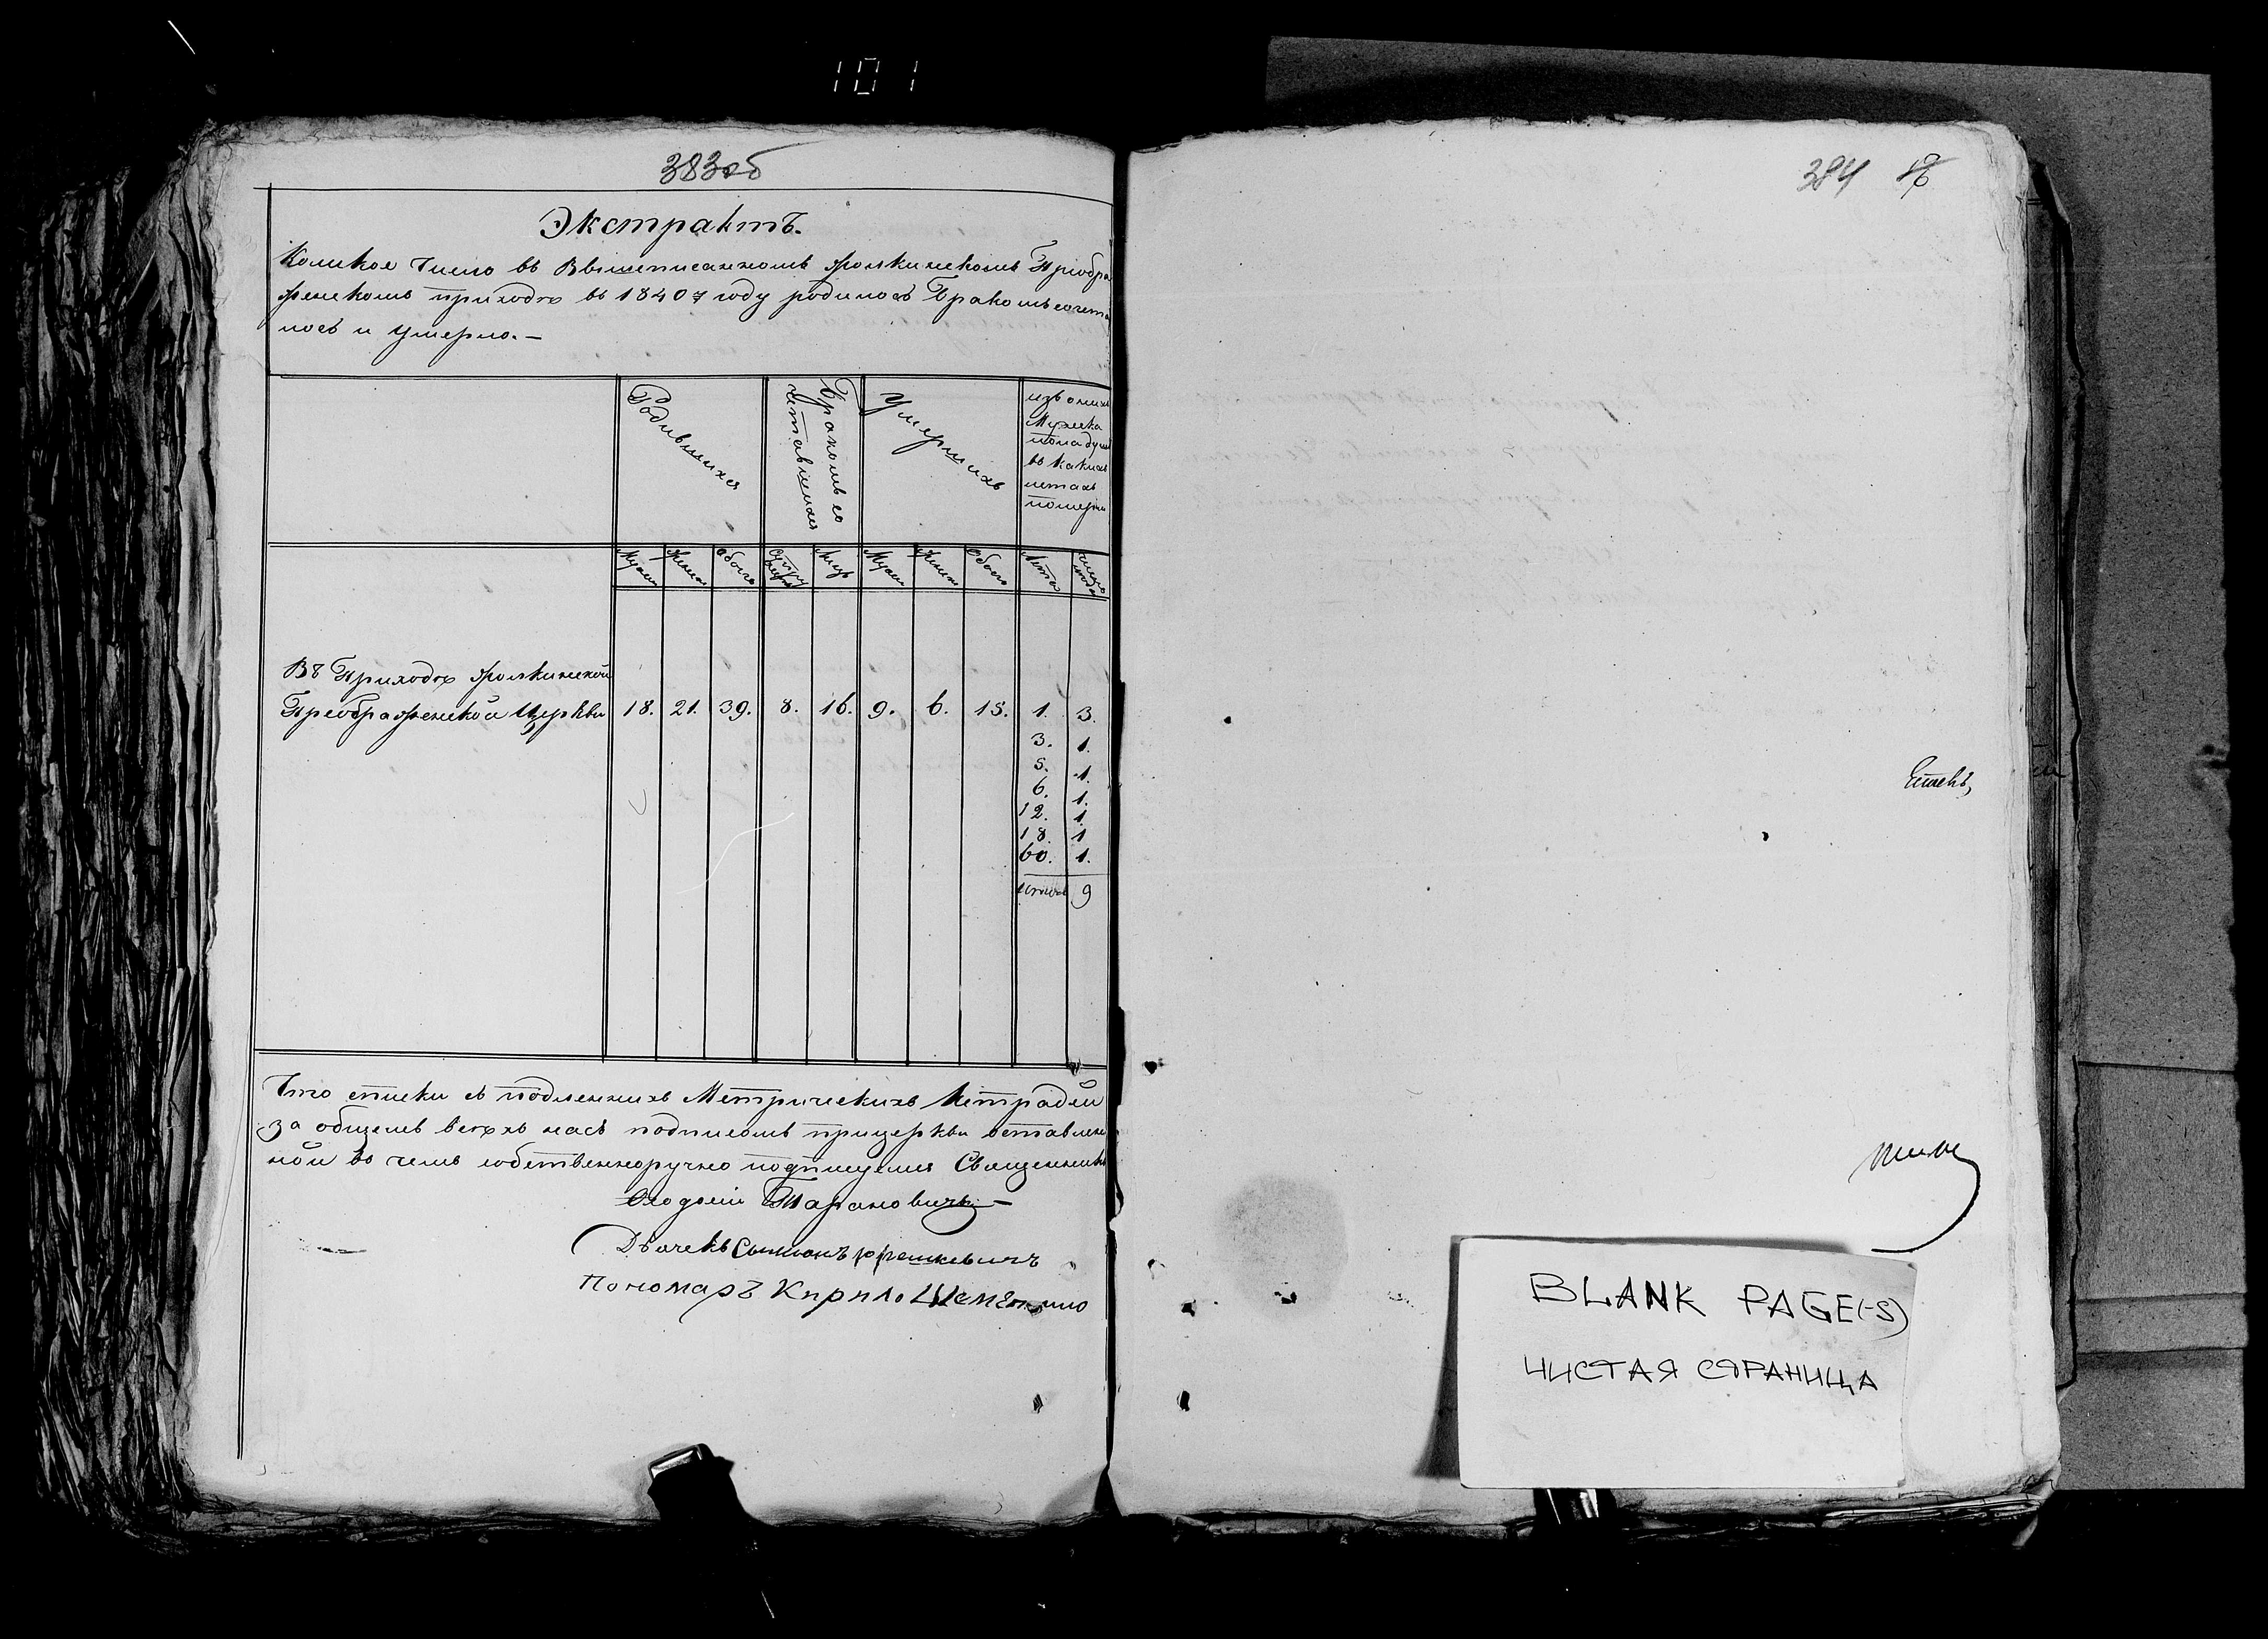 101
383об
Экстрактъ.
Коликое число въ Ввышеписанномъ Преобра
женскомъ приходѣ въ 1840 году родилось Бракомъ сочета
лось и умерло. —
Родившихся
Бракомъ со
четавшихся
Умершихъ
изъ онихъ
Мужеска
пола душъ
въ какихъ
летахъ
померли
Муж
Женск
Обоего
Лицъ
Муж
Женск
Обоего
Лета
число
Въ Приходѣ
Преображенской Церкви 18. 21. 39. 8. 16. 9. 6. 15. 1. 3.
3. 1.
5. 1.
6. 1.
12. 1.
18. 1
60. 1.
итого 9
Что списки съ подленнихъ Метрическихъ Тетрадей
за общимъ всѣхъ насъ подписомъ прицеркви оставлен
ной во чемъ собственноручно подпишемся Священникъ
Феодосій Тарановичъ —
Дьячекъ Симеонъ Юрашкевичъ
Пономаръ Кирило
384 18
BLANK PAGE(-S)
ЧИСТАЯ СТРАНИЦА